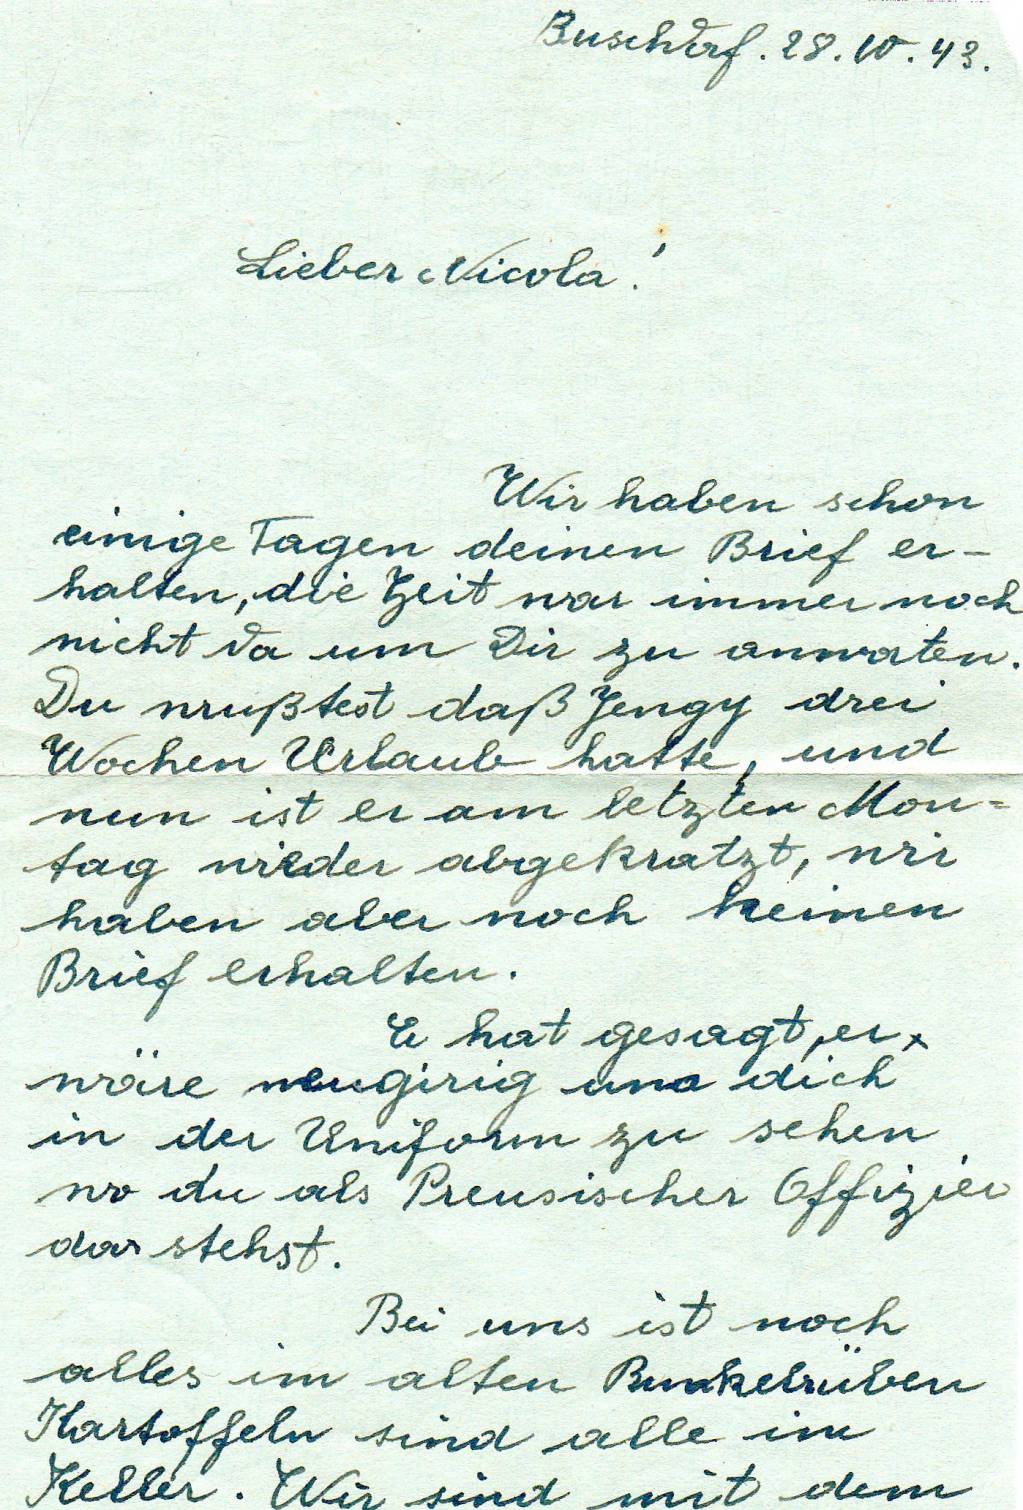 Buschdrf. 28.10.43.
Lieber Nicola!
Wir haben schon
einige Tagen deinen Brief er-
halten, die Zeit war immer noch
nicht da um Dir zu anworten.
Du wußtest daß Jengy drei
Wochen Urlaub hatte, und
nun ist er am letzten Mon=
tag wieder abgekratzt, wir
haben aber noch keinen
Brief erhalten.
Er hat gesagt, er
wäre neugirig und dich
in der Uniform zu sehen
wo du als Preusischer Offizier
dar stehst.
Bei uns ist noch
alles im alten Runkelrüben
Kartoffeln sind alle im
Keller. Wir sind mit dem